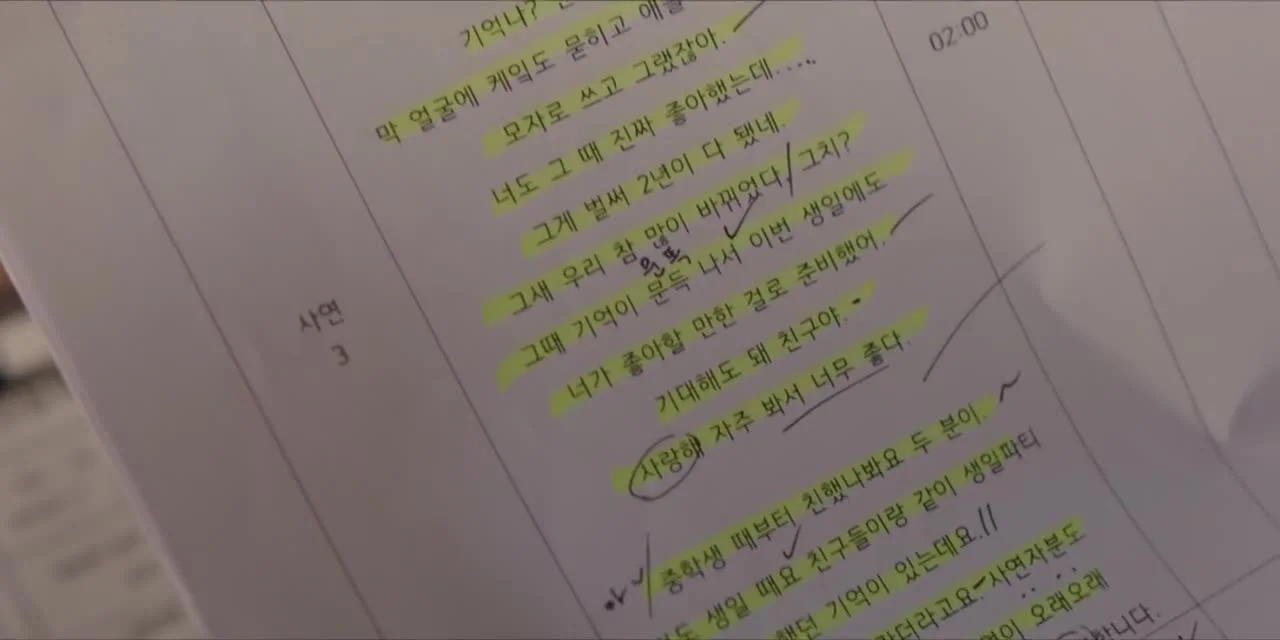 기억나?
막 얼굴에 케익도 묻히고
모자로 쓰고 그랬잖아.
너도 그 때 진짜 좋아했는데....
그게 벌써 2년이 다 됐네.
그새 우리 참 많이 바뀌었다/그치?
그때 기억이 문득 나서 이번 생일에도
너가 좋아할 만한 걸로 준비했어.
기대해도 돼 친구야.
사랑해 자주 봐서 너무 좋다.
중학생 때부터 친했나봐요 두 분이.
생일 때요 친구들이랑 같이 생일파티
했던 기억이 있는데요.
사연자분도
오래오래
02:00
사연
3